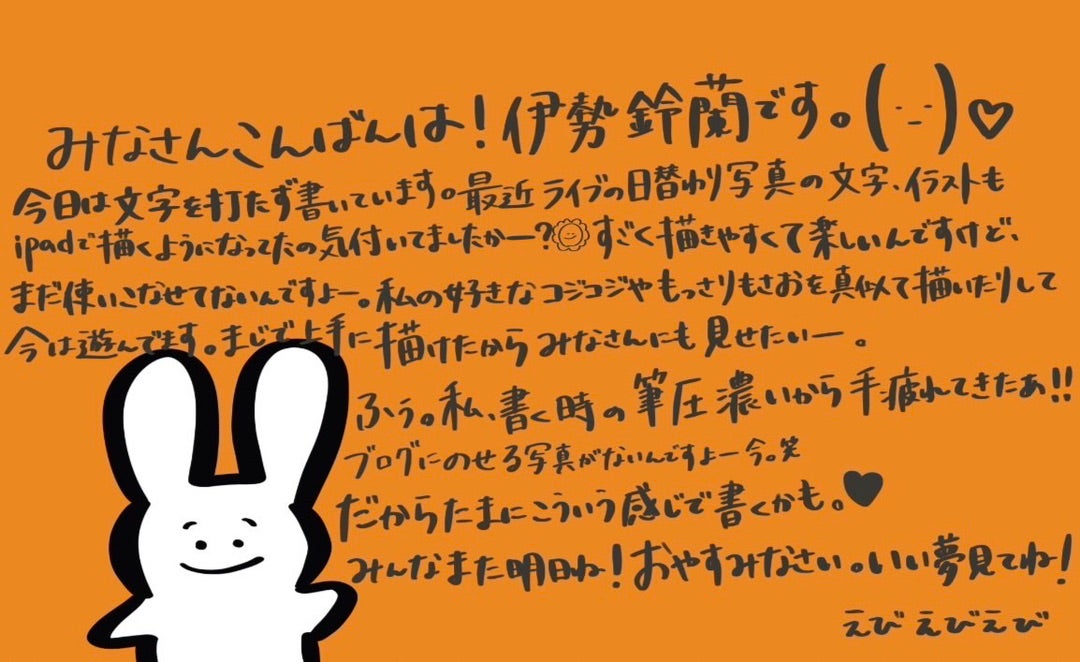 みなさんこんばんは！伊勢鈴蘭です。(˙-˙)♡
今日は文字を打たず書いています。最近ライブの日替わり写真の文字、イラストも
ipadで描くようになってたの気付いてましたかー？すごく描きやすくて楽しいんですけど、
まだ使いこなせてないんですよー。私の好きなコジコジやもっさりもさおを真似て描いたりして
今は遊んでます。まじで上手に描けたからみなさんにも見せたいー。
ふぅ。私、書く時の筆圧濃いから手疲れてきたあ!!
ブログにのせる写真がないんですよー今。笑
だからたまにこういう感じで書くかも。♥
みんなまた明日ね！おやすみなさい。いい夢見てね！
えび えびえび